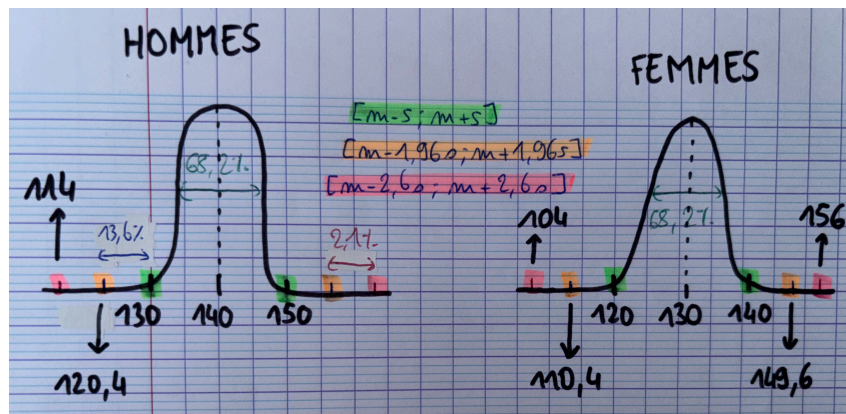 HOMMES
FEMMES
[m-s ; m+s]
[m-1,96s ; m+1,96s]
[m-2,6s ; m+2,6s]
68,2%
114
13,6%
2,1%
130
140
150
120,4
68,2%
104
156
120
130
140
110,4
149,6